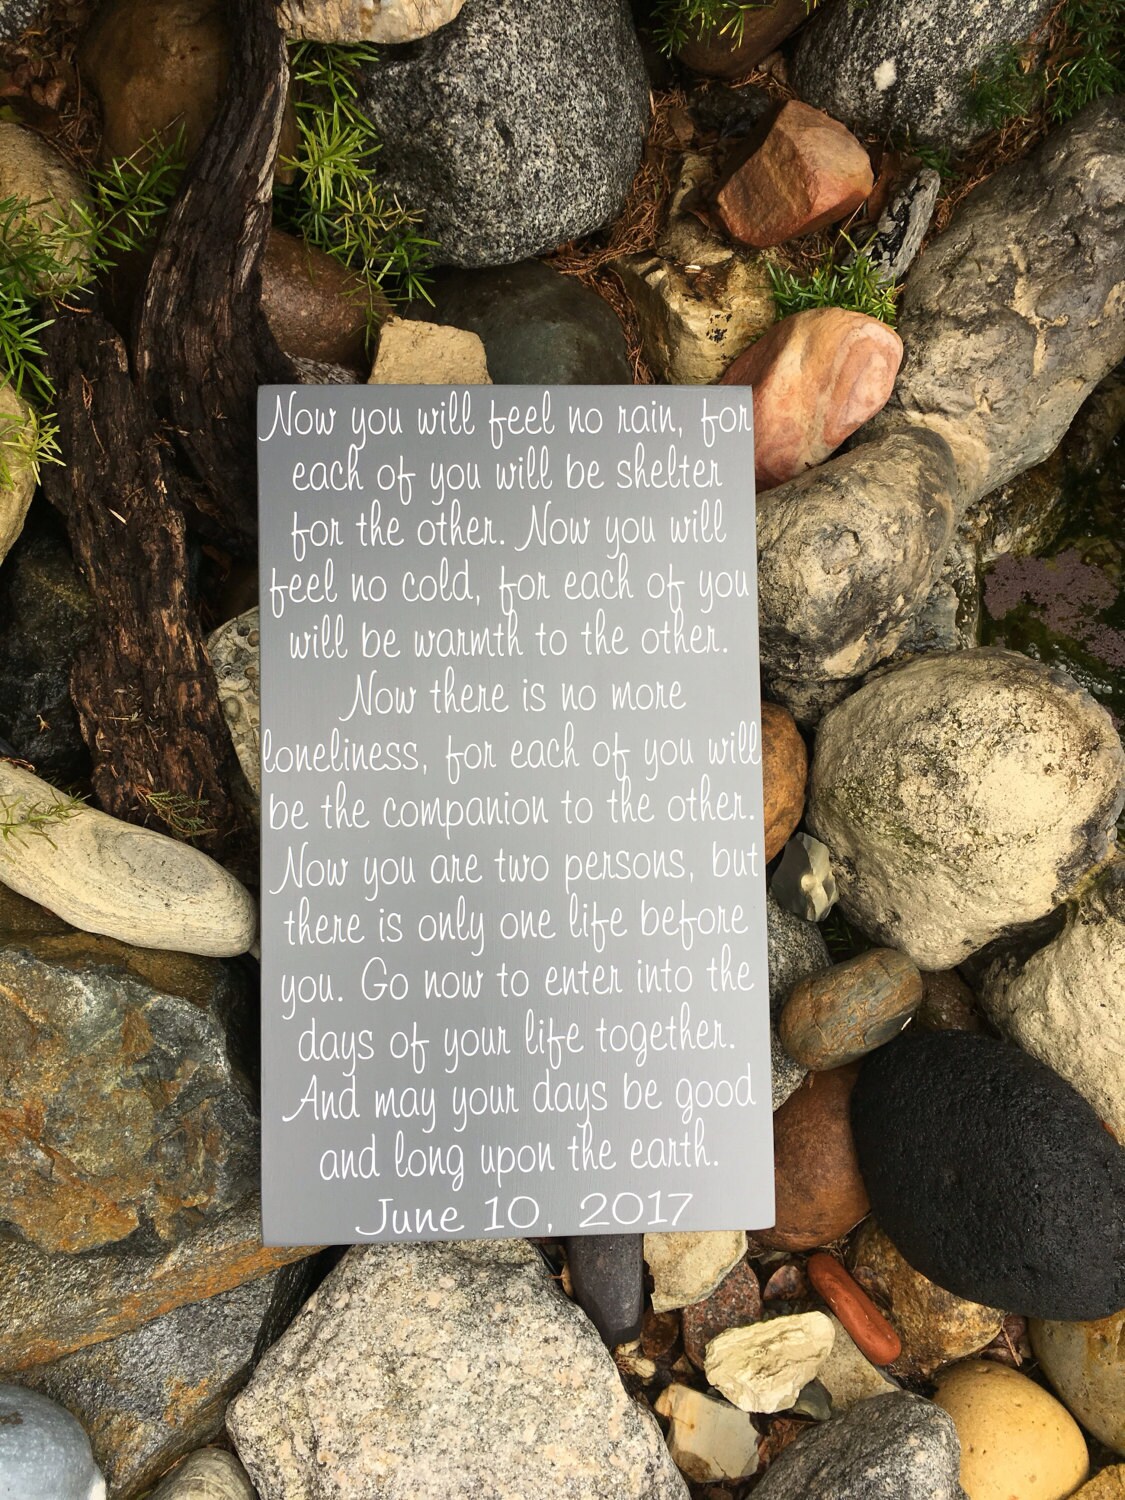 Now you will feel no rain, for
each of you will be shelter
for the other. Now you will
feel no cold, for each of you
will be warmth to the other.
Now there is no more
loneliness, for each of you will
be the companion to the other.
Now you are two persons, but
there is only one life before
you. Go now to enter into the
days of your life together.
And may your days be good
and long upon the earth.
June 10, 2017